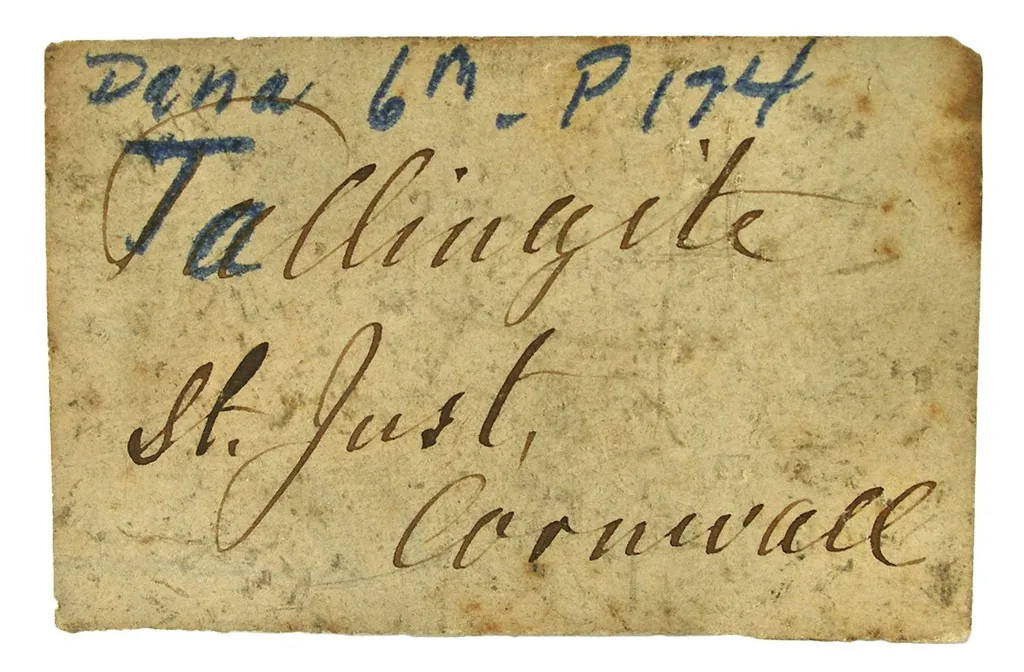 Dana 6th - P 174
Tallingite
St. Just,
Cornwall